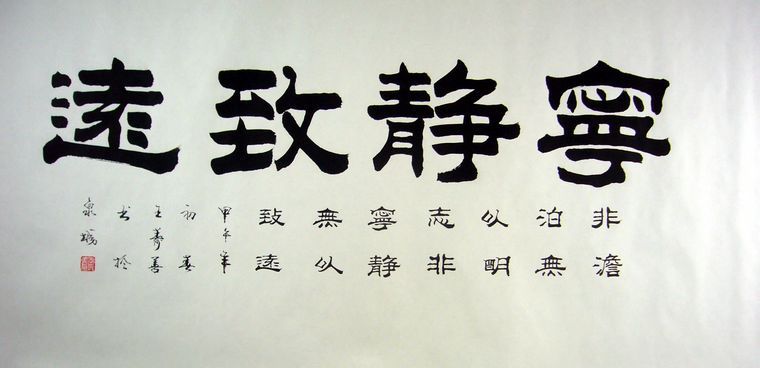 寧静致遠
非澹
泊無
以明
志非
寧静
無以
致遠
甲午年
初春
王壽善
書於
泉城